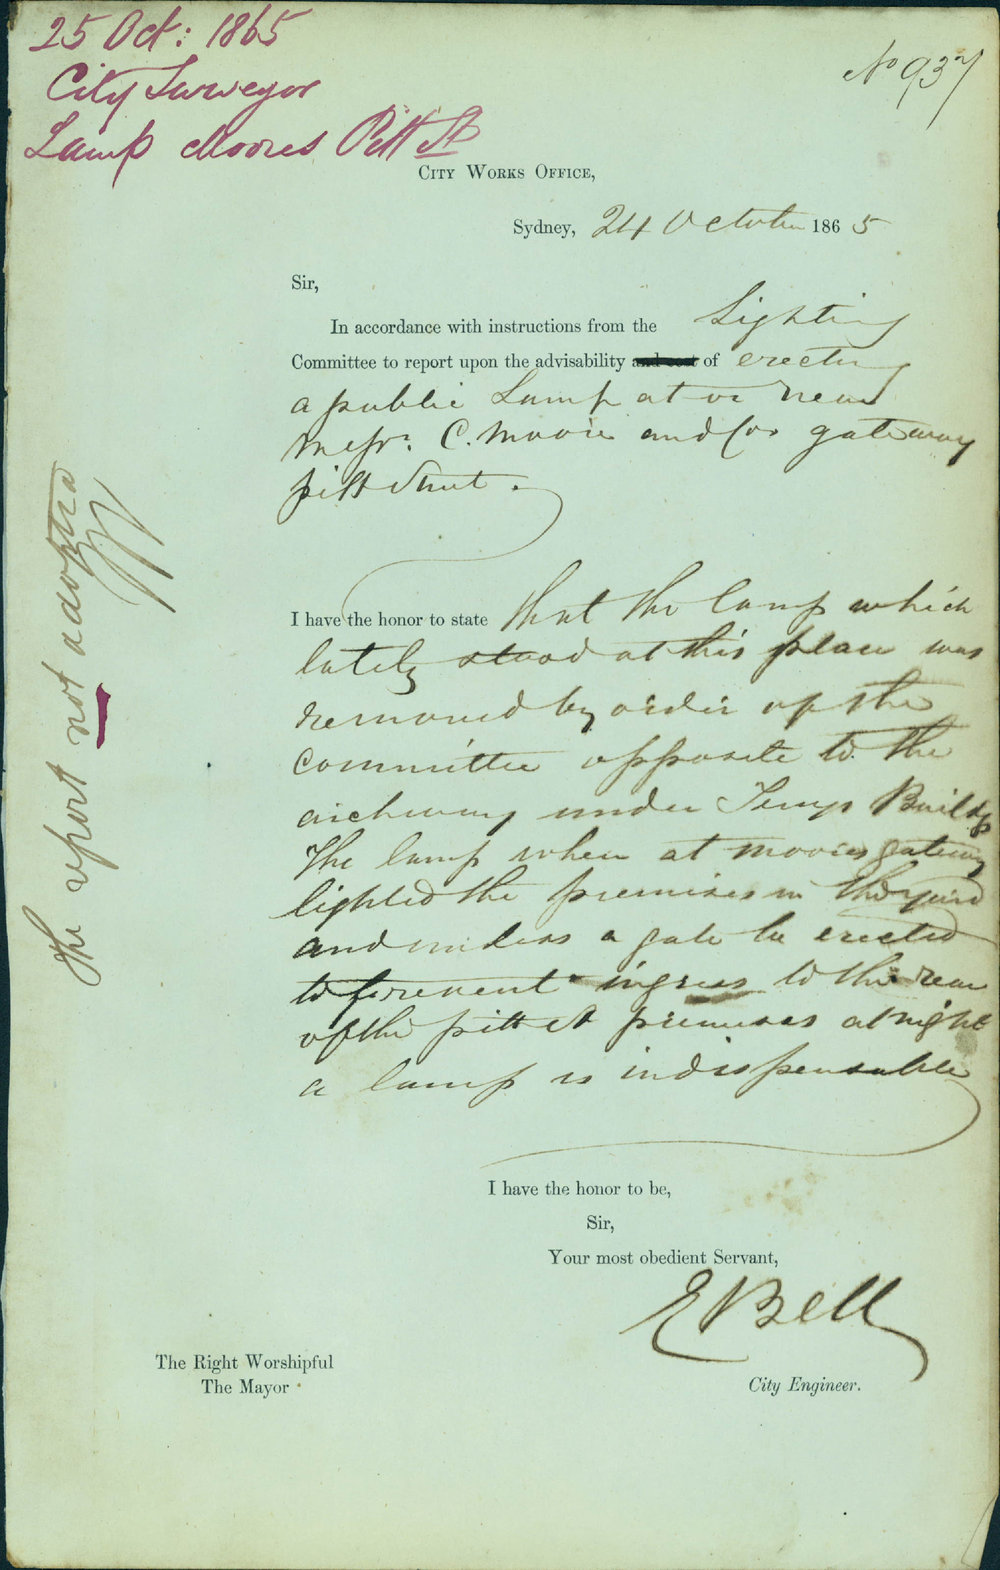 25 Oct: 1865
City Surveyor
Lamp Moores Pitt St
No 937
City Works Office,
Sydney, 24 October 1865
Sir,
In accordance with instructions from the Lighting
Committee to report upon the advisability and cost of erecting
a public Lamp at or near
Messrs. C. Moore and Cos gateway
pitt Street.
I have the honor to state that the lamp which
lately stood at this place was
removed by order of the
Committee opposite to the
archway under Buildgs
The lamp when at moores gateway
lighted the premises in the yard
and unless a gate be erected
to prevent ingress to the rear
of the pitt st premises at night
a lamp is indispensable
I have the honor to be,
Sir,
Your most obedient Servant,
E Bell
City Engineer.
The Right Worshipful
The Mayor
The report not adopted